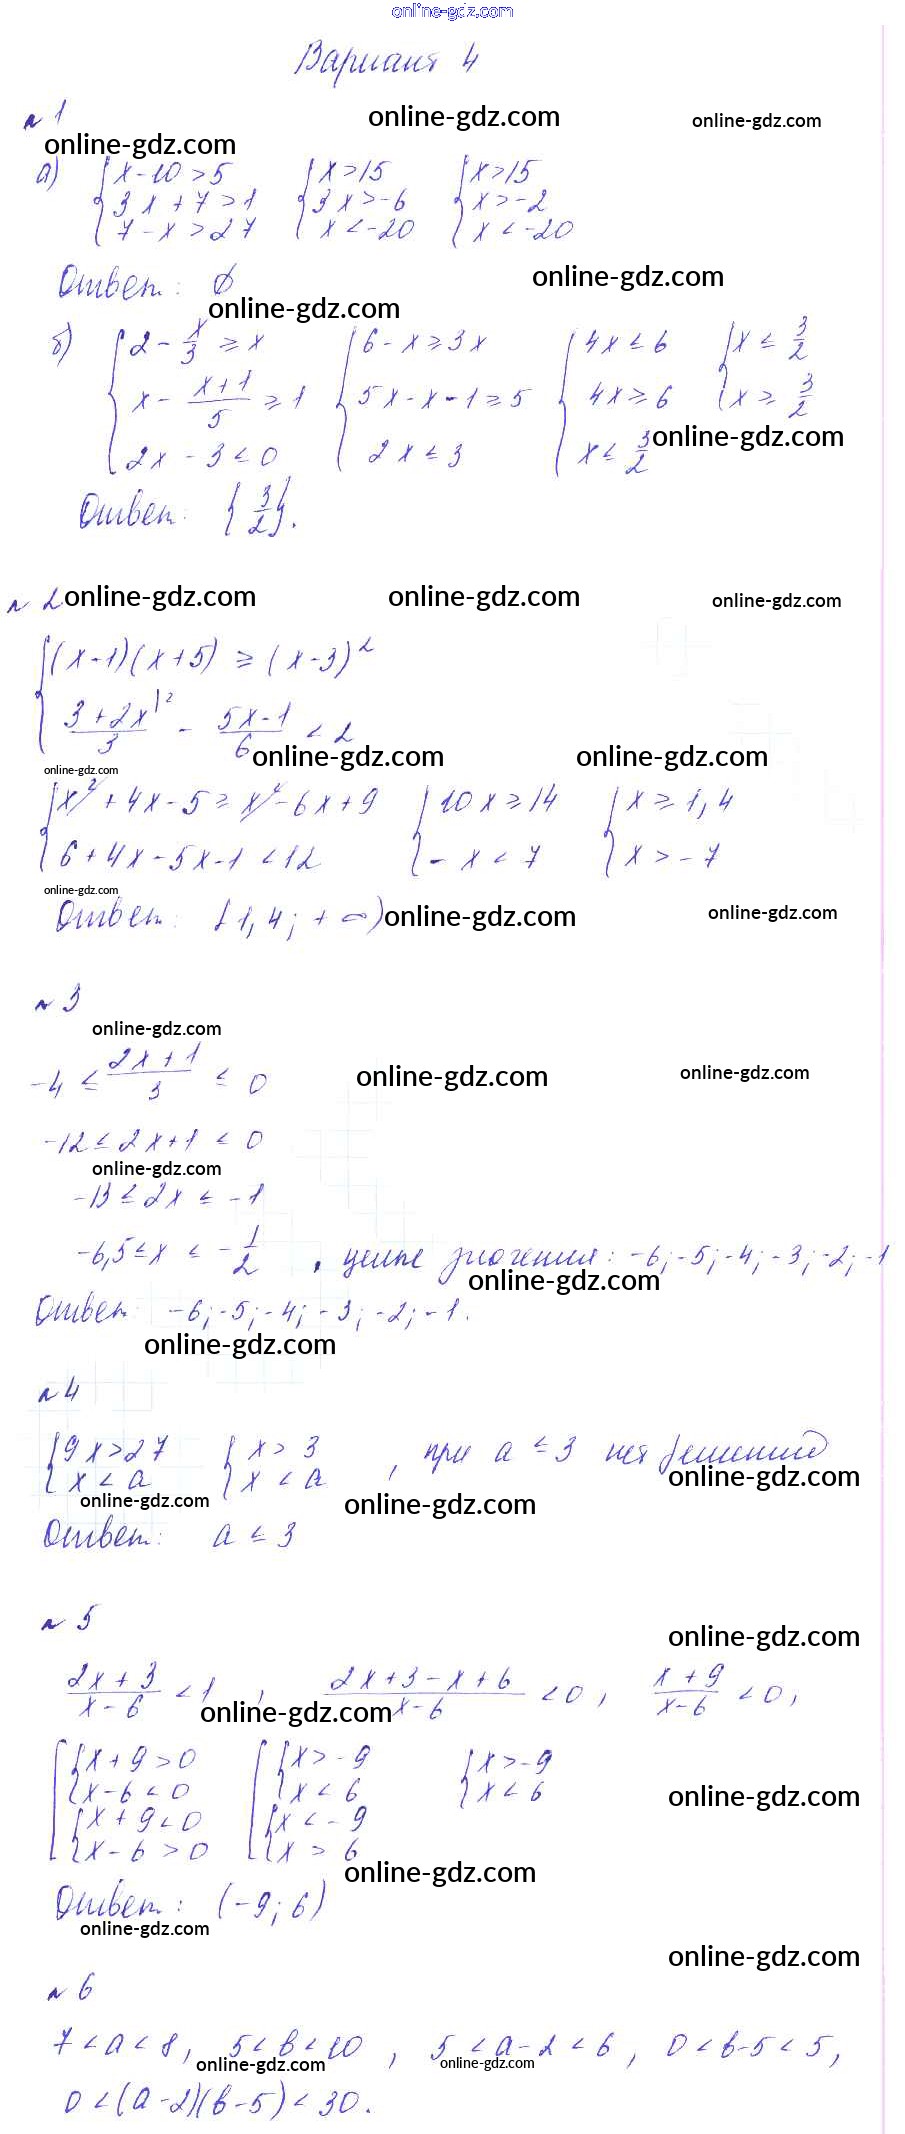 online-gdz.com
Вариант 4
№ 1
online-gdz.com online-gdz.com
online-gdz.com
а) { x - 10 > 5 { x > 15 { x > 15
3x + 7 > 1 3x > -6 x > -2
7 - x > 27 x < -20 x < -20
online-gdz.com
Ответ: ∅
online-gdz.com
б) { 2 - x/3 ≥ x { 6 - x ≥ 3x { 4x ≤ 6 { x ≤ 3/2
x - (x+1)/5 ≥ 1 5x - x - 1 ≥ 5 4x ≥ 6 x ≥ 3/2
online-gdz.com
2x - 3 ≤ 0 2x ≤ 3 x ≤ 3/2
Ответ: {3/2}.
№ 2 online-gdz.com online-gdz.com online-gdz.com
{ (x-1)(x+5) ≥ (x-3)²
(3+2x)/3 |² - (5x-1)/6 < 2
online-gdz.com online-gdz.com
online-gdz.com
{ x² + 4x - 5 ≥ x² - 6x + 9 { 10x ≥ 14 { x ≥ 1,4
6 + 4x - 5x - 1 < 12 - x < 7 x > -7
online-gdz.com
Ответ: [1,4; +∞) online-gdz.com online-gdz.com
№ 3
online-gdz.com
-4 ≤ (2x+1)/3 ≤ 0 online-gdz.com online-gdz.com
-12 ≤ 2x+1 ≤ 0
online-gdz.com
-13 ≤ 2x ≤ -1
-6,5 ≤ x ≤ -1/2 , целые значения: -6; -5; -4; -3; -2; -1
online-gdz.com
Ответ: -6; -5; -4; -3; -2; -1.
online-gdz.com
№ 4
{ 9x > 27 { x > 3 , при a ≤ 3 нет решений
x < a x < a
online-gdz.com
online-gdz.com online-gdz.com
Ответ: a ≤ 3
№ 5
online-gdz.com
(2x+3)/(x-6) < 1 , (2x+3-x+6)/(x-6) < 0 , (x+9)/(x-6) < 0 ,
online-gdz.com
[ { x+9 > 0 [ { x > -9 { x > -9
x-6 < 0 x < 6 x < 6
online-gdz.com
{ x+9 < 0 { x < -9
x-6 > 0 x > 6
online-gdz.com
Ответ: (-9; 6)
online-gdz.com
online-gdz.com
№ 6
7 < a < 8, 5 < b < 10 , 5 < a-2 < 6 , 0 < b-5 < 5 ,
online-gdz.com online-gdz.com
0 < (a-2)(b-5) < 30.